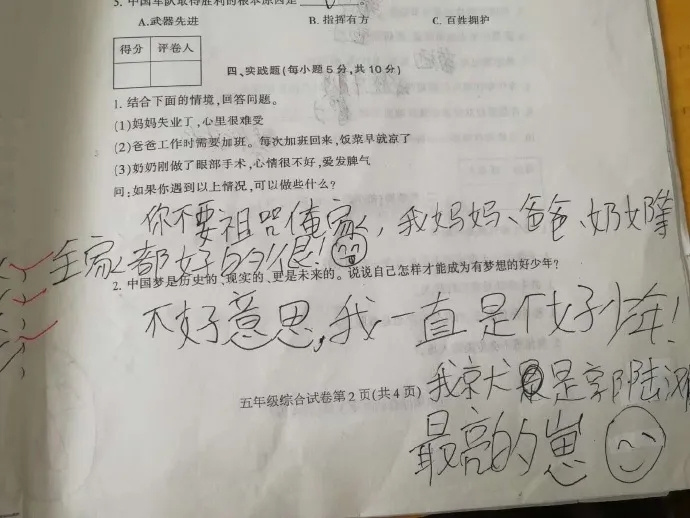 5. 中国军队取得胜利的根本原因是
A.武器先进 B. 指挥有方 C. 百姓拥护
得分 评卷人
四、实践题(每小题5分,共10分)
1. 结合下面的情境,回答问题。
(1)妈妈失业了,心里很难受
(2)爸爸工作时需要加班。每次加班回来,饭菜早就凉了
(3)奶奶刚做了眼部手术,心情很不好,爱发脾气
问:如果你遇到以上情况,可以做些什么?
你不要祖咒俺家,我妈妈、爸爸、奶奶等
全家都好的很!
2. 中国梦是历史的、现实的、更是未来的。说说自己怎样才能成为有梦想的好少年?
不好意思,我一直是个好少年!
五年级综合试卷第2页(共4页)
我就是
最亮的崽